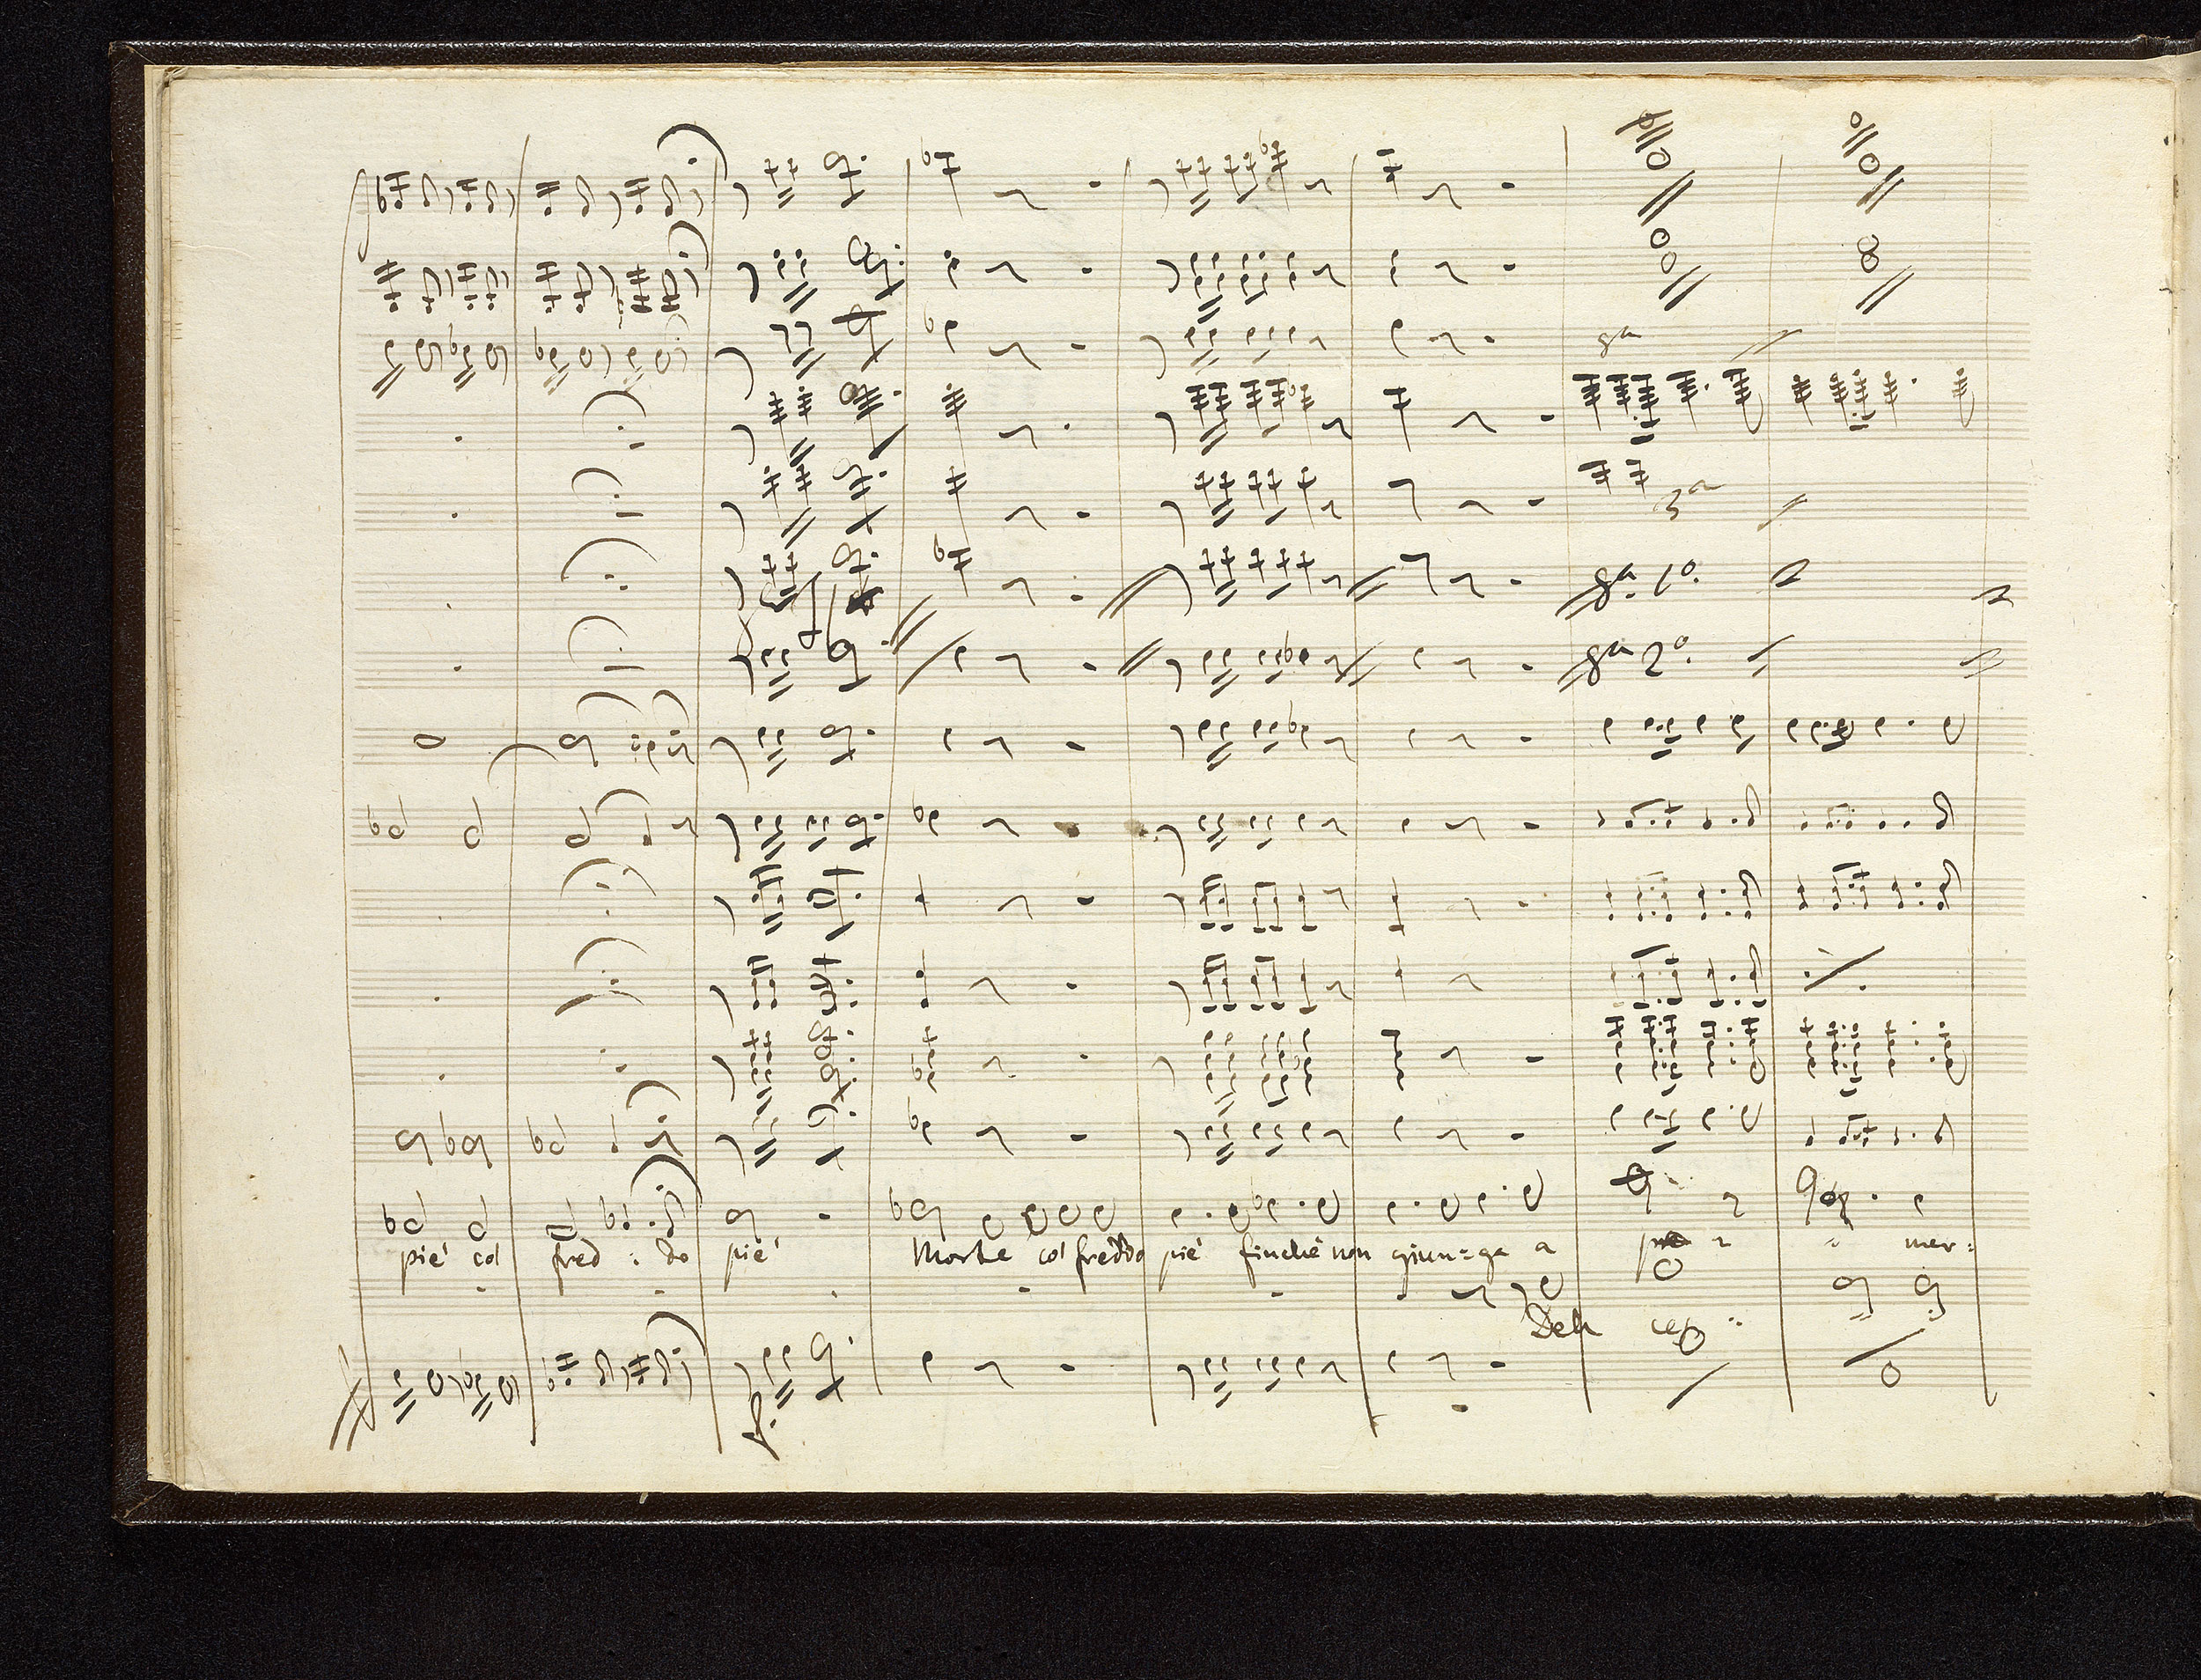 8a
3a
8a 1o.
8a 2o.
pié col fred : do pié Morte col freddo pié finché non giun=ga a mer=
Deh
p.